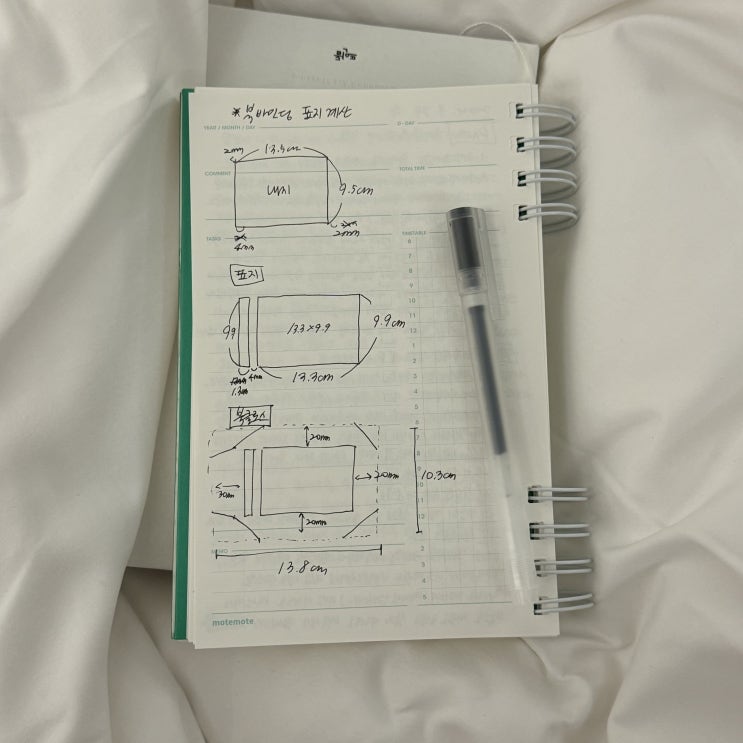 *북바인딩 표지 계산
YEAR / MONTH / DAY
D - DAY
2mm 13.5cm
COMMENT
TOTAL TIME
내지
9.5cm
2mm
TASKS
4mm
TIMETABLE
6
7
8
9
10
11
12
1
2
3
4
5
6
7
8
9
10
11
12
1
2
3
4
5
표지
99
13.3×9.9
9.9cm
4mm
13.3cm
1.3cm
북클로스
20mm
30mm
20mm
10.3cm
20mm
MEMO
13.8cm
motemote